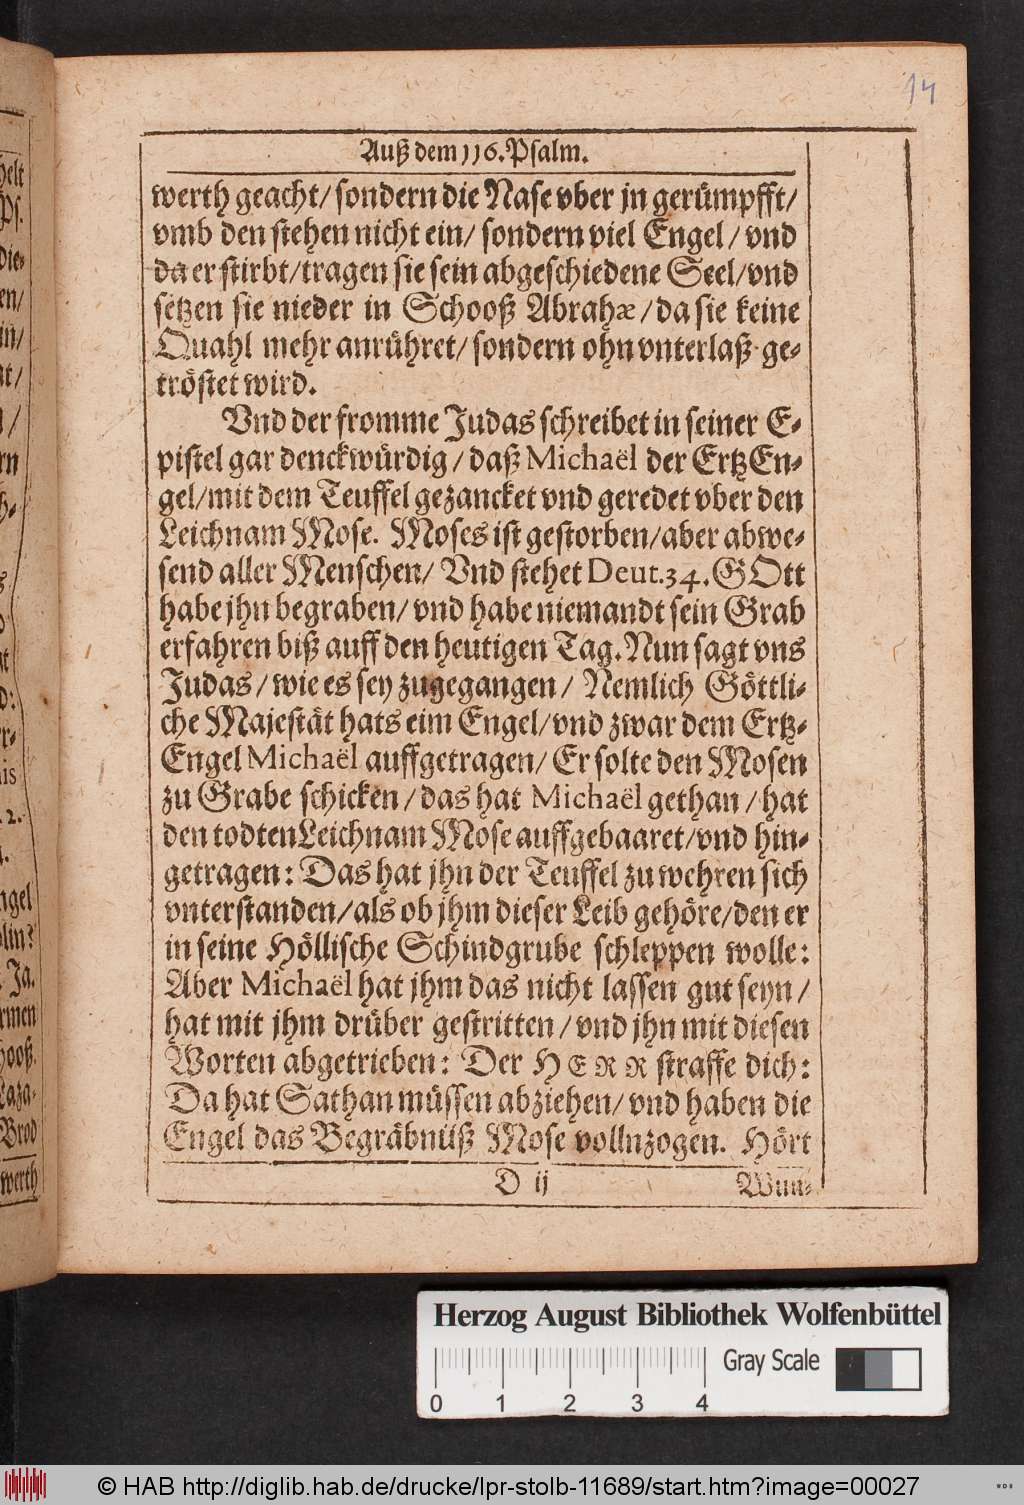 14
Auß dem 116. Psalm.
werth geacht/ sondern die Nase vber jn gerümpfft/
vmb den stehen nicht ein/ sondern viel Engel/ vnd
da er stirbt/ tragen sie sein abgeschiedene Seel/ vnd
setzen sie nieder in Schooß Abrahæ/ da sie keine
Quahl mehr anrühret/ sondern ohn vnterlaß ge-
tröstet wird.
Vnd der fromme Judas schreibet in seiner E-
pistel gar denckwürdig/ daß Michaël der ErtzEn-
gel/ mit dem Teuffel gezancket vnd geredet vber den
Leichnam Mose. Moses ist gestorben/ aber abwe-
send aller Menschen/ Vnd stehet Deut. 34. GOtt
habe jhn begraben/ vnd habe niemandt sein Grab
erfahren biß auff den heutigen Tag. Nun sagt vns
Judas/ wie es sey zugegangen/ Nemlich Göttli-
che Majestät hats eim Engel/ vnd zwar dem Ertz-
Engel Michaël auffgetragen/ Er solte den Mosen
zu Grabe schicken/ das hat Michaël gethan/ hat
den todten Leichnam Mose auffgebaaret/ vnd hin-
getragen: Das hat jhn der Teuffel zu wehren sich
vnterstanden/ als ob jhm dieser Leib gehöre/ den er
in seine Höllische Schindgrube schleppen wolle:
Aber Michaël hat jhm das nicht lassen gut seyn/
hat mit jhm drüber gestritten/ vnd jhn mit diesen
Worten abgetrieben: Der HERR straffe dich:
Da hat Sathan müssen abziehen/ vnd haben die
Engel das Begräbnüß Mose vollnzogen. Hört
D ij
Wun-
Herzog August Bibliothek Wolfenbüttel
Gray Scale
0 1 2 3 4
© HAB http://diglib.hab.de/drucke/lpr-stolb-11689/start.htm?image=00027